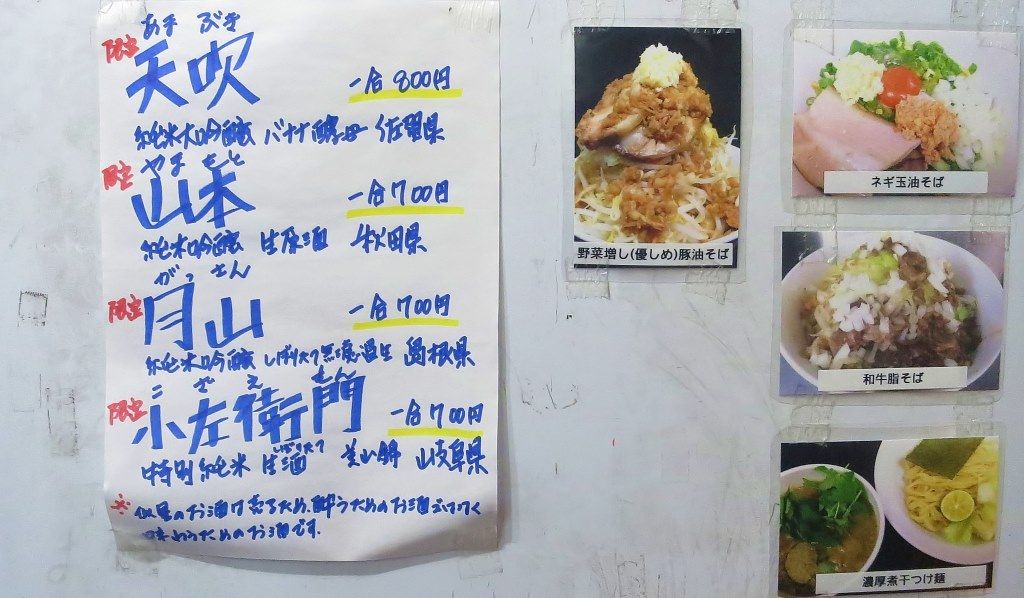 あま ぶき
限定 天吹 一合 800円
純米大吟醸 バナナ酵母 佐賀県
やま もと
限定 山本 一合 700円
純米吟醸 生原酒 秋田県
がっ さん
限定 月山 一合 700円
純米吟醸 しぼりたて無濾過生 島根県
こ ざ え もん
限定 小左衛門 一合 700円
しぼりたて
特別純米 生酒 美山錦 岐阜県
※ のお酒は 売るため、酔うためのお酒でなく
味わうためのお酒です。
野菜増し(優しめ)豚油そば
ネギ玉油そば
和牛脂そば
濃厚煮干つけ麺